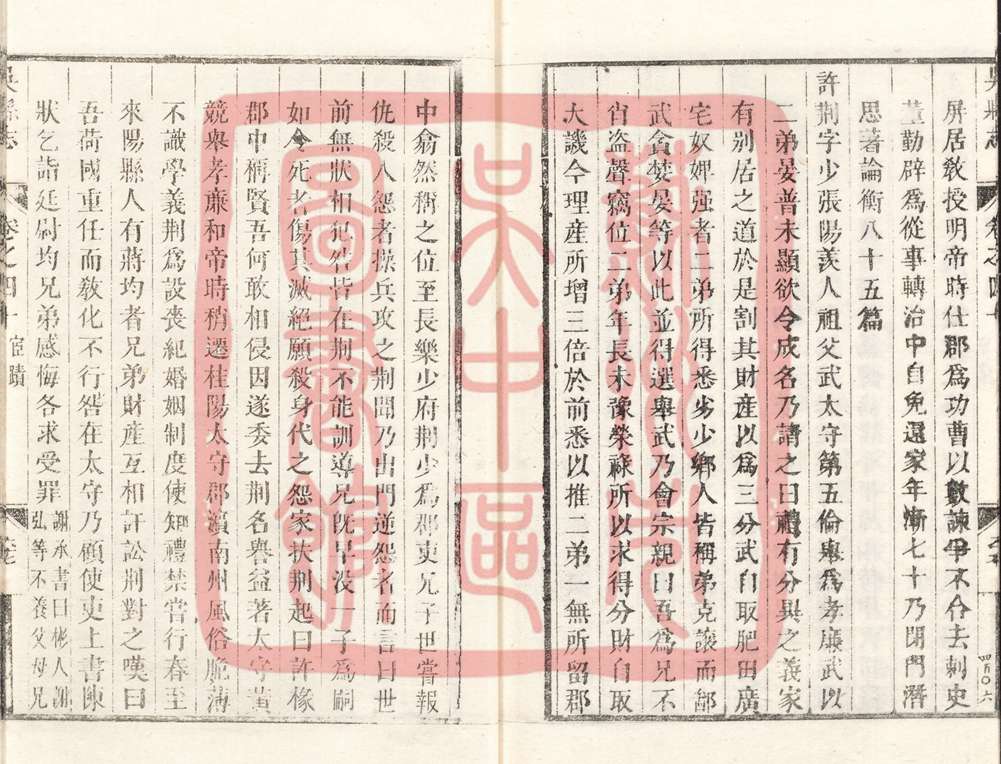 屏居敎授明帝時仕郡爲功曹以數諫爭不合去刺史
董勤辟爲從事轉治中自免還家年漸七十乃閉門潛
思著論衡八十五篇
許荆字少張陽羨人祖父武太守第五倫舉爲孝廉武以
二弟晏普未顯欲令成名乃請之曰禮有分異之義家
有别居之道於是割其財産以爲三分武自取肥田廣
宅奴婢强者二弟所得悉劣少鄉人皆稱弟克讓而鄙
武貪婪晏等以此並得選舉武乃會宗親曰吾爲兄不
肖盗聲竊位二弟年長未豫榮祿所以求得分財自取
大譏今理産所增三倍於前悉以推二弟一無所留郡
中翕然稱之位至長樂少府荆少爲郡吏兄子世嘗報
仇殺人怨者操兵攻之荆聞乃出門逆怨者而言曰世
前無狀相犯咎皆在荆不能訓導兄旣早没一子爲嗣
如令死者傷其滅絕願殺身代之怨家扶荆起曰許掾
郡中稱賢吾何敢相侵因遂委去荆名譽益著太守黄
競舉孝廉和帝時稍遷桂陽太守郡濱南州風俗脆薄
不識學義荆爲設喪紀婚姻制度使知禮禁嘗行春至
來陽縣人有蔣均者兄弟財産互相訐訟荆對之嘆曰
吾荷國重任而敎化不行咎在太守乃顧使吏上書陳
狀乞詣廷尉均兄弟感悔各求受罪
謝承書曰彬人謝
弘等不養父母兄
吳縣志
卷之四十
宦蹟
四百〇六
蘇州市
吳中區
圖書館